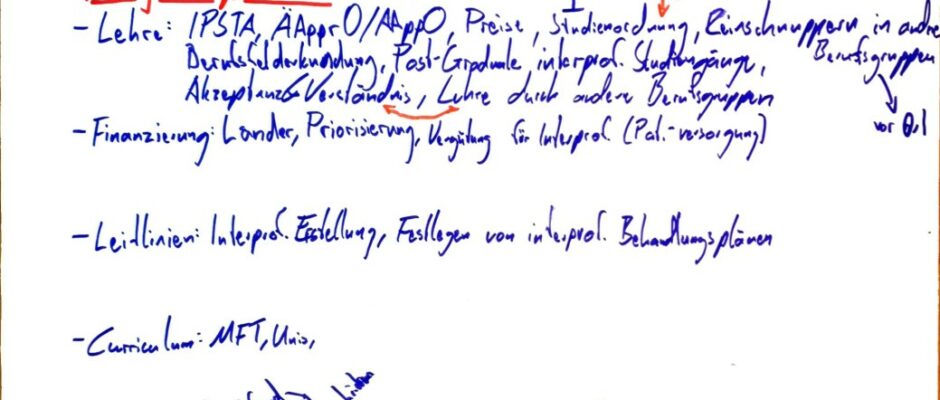 - Lehre: IPSTA, ÄApprO/AAppO, Preise, Studienordnung, Reinschnuppern in andere Berufsgruppen
Berufsfelderkundung, Post-Graduale interprof. Studiengänge,
Akzeptanz & Verständnis, Lehre durch andere Berufsgruppen
vor Ort
- Finanzierung: Länder, Priorisierung, Vergütung für Interprof. (Pat.-versorgung)
- Leitlinien: Interprof. Erstellung, Festlegen von interprof. Behandlungsplänen
- Curriculum: MFT, Unis,